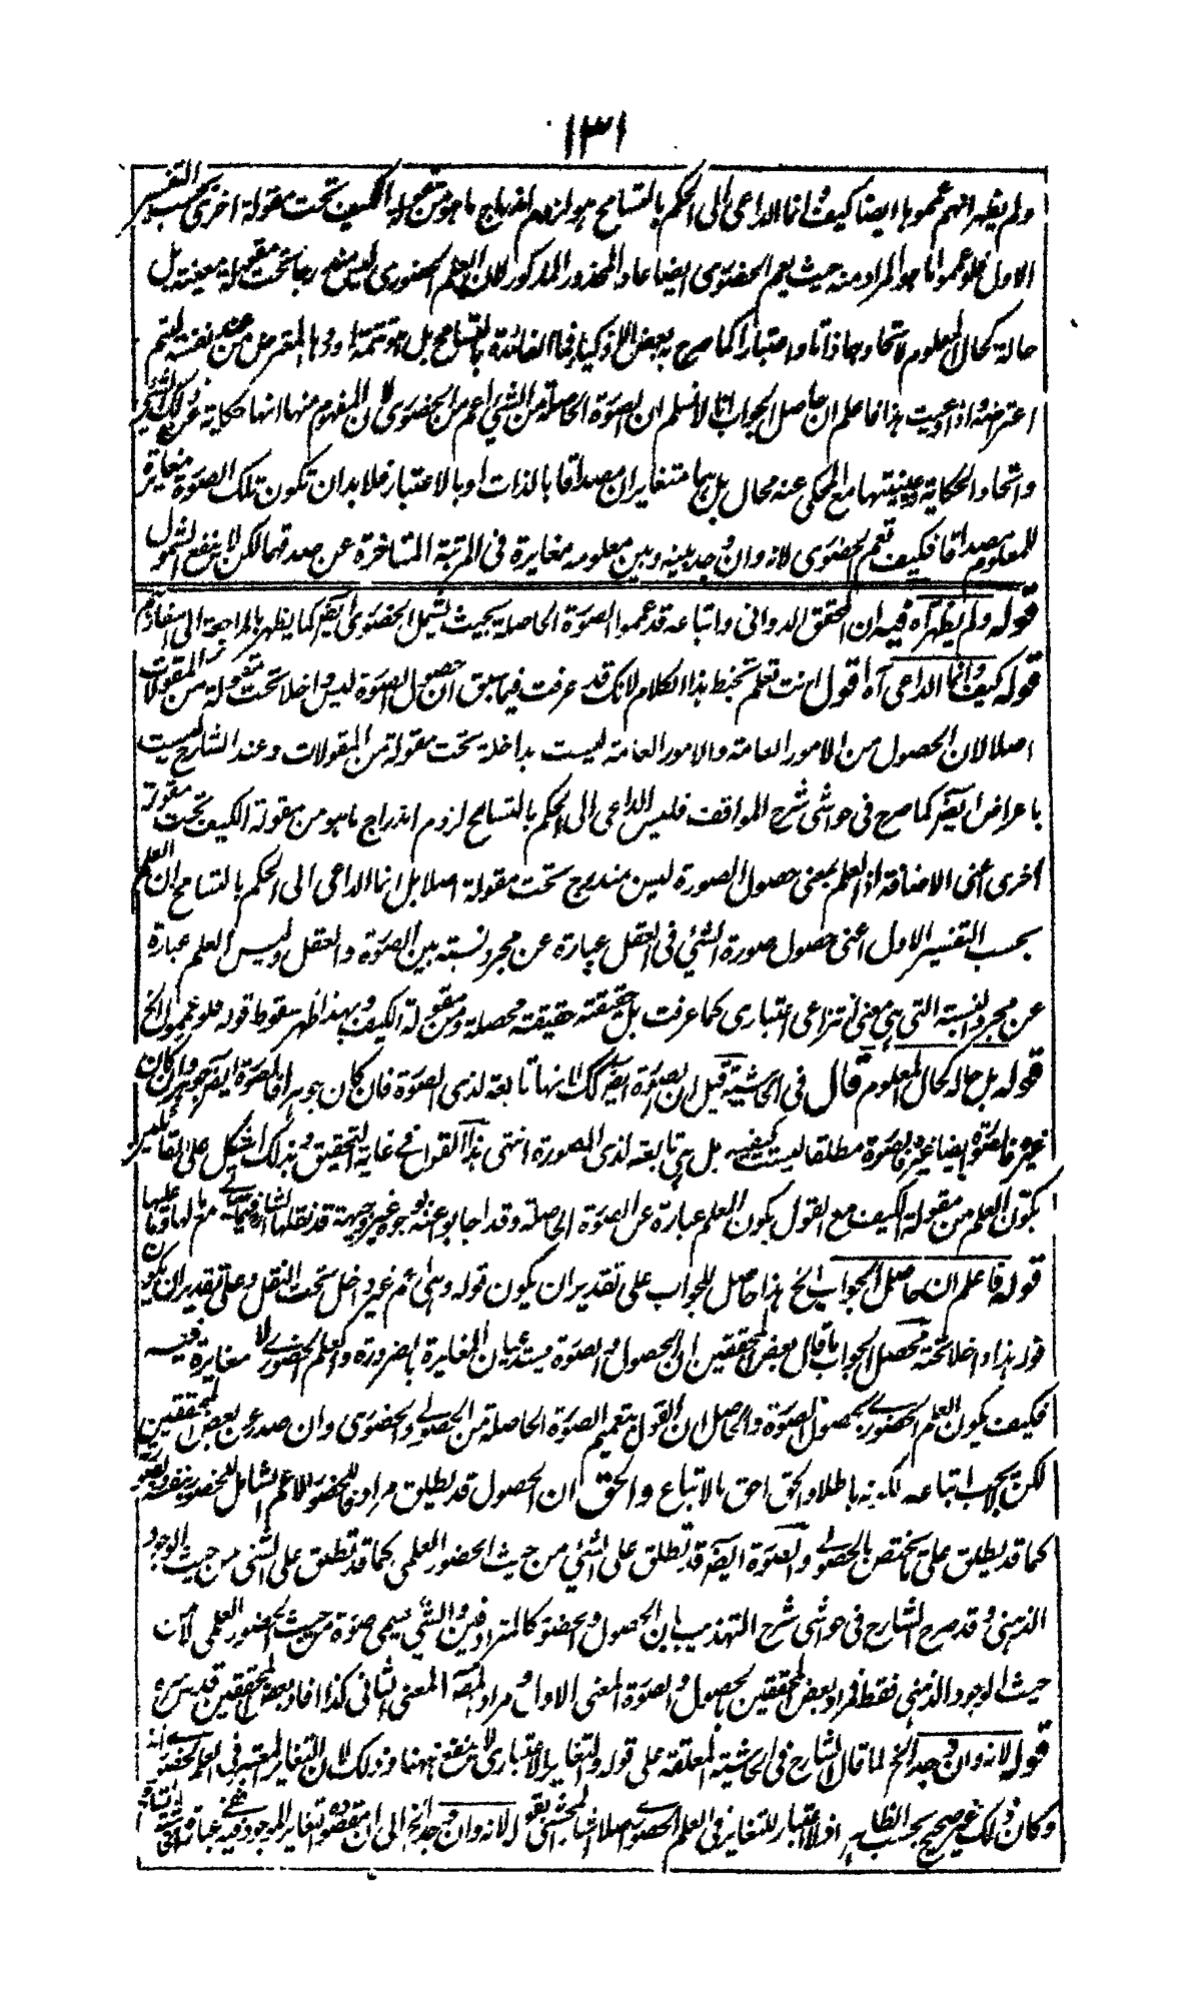 ١٣١
ولم يظهر انهم عمموها ايضا كيف وانما الداعى الى الحكم بالتسامح هو لزوم اندراج ما هو من مقولة الكيف تحت مقولة اخرى بحسب التفسير
الاول فلو عمموا ما هو المراد منه حيث يعم الحضورى ايضا عاد المحذور المذكور لان العلم الحضورى ليس مندرجا تحت مقولة معينة بل
حاله كحال المعلوم لاتحادهما ذاتا واعتبارا كما صرح به بعض الاذكياء فما الفائدة بالتسامح بل
اعترضه واذا وعيت هذا فاعلم ان حاصل الجواب انا لا نسلم ان الصورة الحاصلة من الشئ اعم من الحضورى لان المفهوم منها انها حكاية عن ذلك الشئ
واتحاد الحكاية وعينيتها مع المحكى عنه محال بل هما متغايران مصداقا بالذات او بالاعتبار فلا بد ان تكون تلك الصورة مغايرة
للمعلوم مصداقا فكيف تعم الحضورى لانه وان وجد بينه وبين معلومه مغايرة فى المرتبة المتاخرة عن صدقهما لكن لا ينفع الشمول
قوله ولم يظهر آه فيه ان المحقق الدوانى واتباعه قد عمموا الصورة الحاصلة بحيث تشمل الحضورى ايضا كما يظهر بالمراجعة الى اسفارهم
قوله كيف وانما الداعى آه اقول انت تعلم تخبط هذا الكلام لانك قد عرفت فيما سبق ان حصول الصورة ليس داخلا تحت مقولة من المقولات
اصلا لان الحصول من الامور العامة والامور العامة ليست بداخلة تحت مقولة من المقولات وعند الشارح ليست
باعراض ايضا كما صرح فى حواشى شرح المواقف فليس الداعى الى الحكم بالتسامح لزوم اندراج ما هو من مقولة الكيف تحت مقولة
اخرى اعنى الاضافة اذ العلم بمعنى حصول الصورة ليس مندرج تحت مقولة اصلا بل انما الداعى الى الحكم بالتسامح ان العلم
بحسب التفسير الاول اعنى حصول صورة الشئ فى العقل عبارة عن مجرد نسبة بين الصورة والعقل وليس العلم عبارة
عن مجرد النسبة التى هى معنى انتزاعى اعتبارى كما عرفت بل حقيقته حقيقة محصلة ومن مقولة الكيف وبهذا ظهر سقوط قوله فلو عمموا الخ
قوله بل حاله كحال المعلوم قال فى الحاشية قيل ان الصورة ايضا كك لانها تابعة لذى الصورة فان كان جوهرا فالصورة ايضا جوهر وان كان
غيره فالصورة ايضا غيره فالصورة مطلقا ليست كيفية بل هى تابعة لذى الصورة انتهى هذا القول فى غاية التحقيق وبذلك اشكل على القائلين
بكون العلم من مقولة الكيف مع القول بكون العلم عبارة عن الصورة الحاصلة وقد اجابوا عنه بوجوه غير وجيهة قد نقلها الشارح مع ما لها وما عليها
قوله فاعلم ان حاصل الجواب الخ هذا حاصل للجواب على تقدير ان يكون قوله وهى اعم غير داخل تحت النقل وعلى تقدير ان يكون
قوله هذا داخلا تحته محصل الجواب ما قال بعض المحققين ان الحصول والصورة يستدعيان المغايرة بالضرورة والعلم الحضورى لا مغايرة فيه
فكيف يكون العلم الحضورى بحصول الصورة والحاصل ان القول بتعميم الصورة الحاصلة من الحصولى والحضورى وان صدر عن بعض المحققين
لكن لا يجب اتباعه لكونه باطلا والحق احق بالاتباع والحق ان الحصول قد يطلق مرادفا للحضور الاعم الشامل للحضور بنفسه وبصورته
كما قد يطلق على ما يختص بالحصولى والصورة ايضا قد تطلق على الشئ من حيث الحضور العلمى كما قد تطلق على الشئ من حيث الوجود
الذهنى وقد صرح الشارح فى حواشى شرح التهذيب بان الحصول والحضور كالمترادفين والشئ يسمى صورة من حيث الحضور العلمى لا من
حيث الوجود الذهنى فقط فمراد بعض المحققين بالحصول والصورة المعنى الاول ومراد المصنف المعنى الثانى كذا افاد بعض المحققين قدس سره
قوله لانه وان وجد الخ لما قال الشارح فى الحاشية المعلقة على قوله والتغاير الاعتبارى لا ينفع ههنا وذلك لان التغاير المعتبر فى العلم الحضورى
وكان ذلك غير صحيح بحسب الظاهر اذ لا اعتبار للتغاير فى العلم الحضورى اصلا اشار المحشى بقوله لانه وان وجد الخ الى ان مقصوده تغاير الموجود فيه